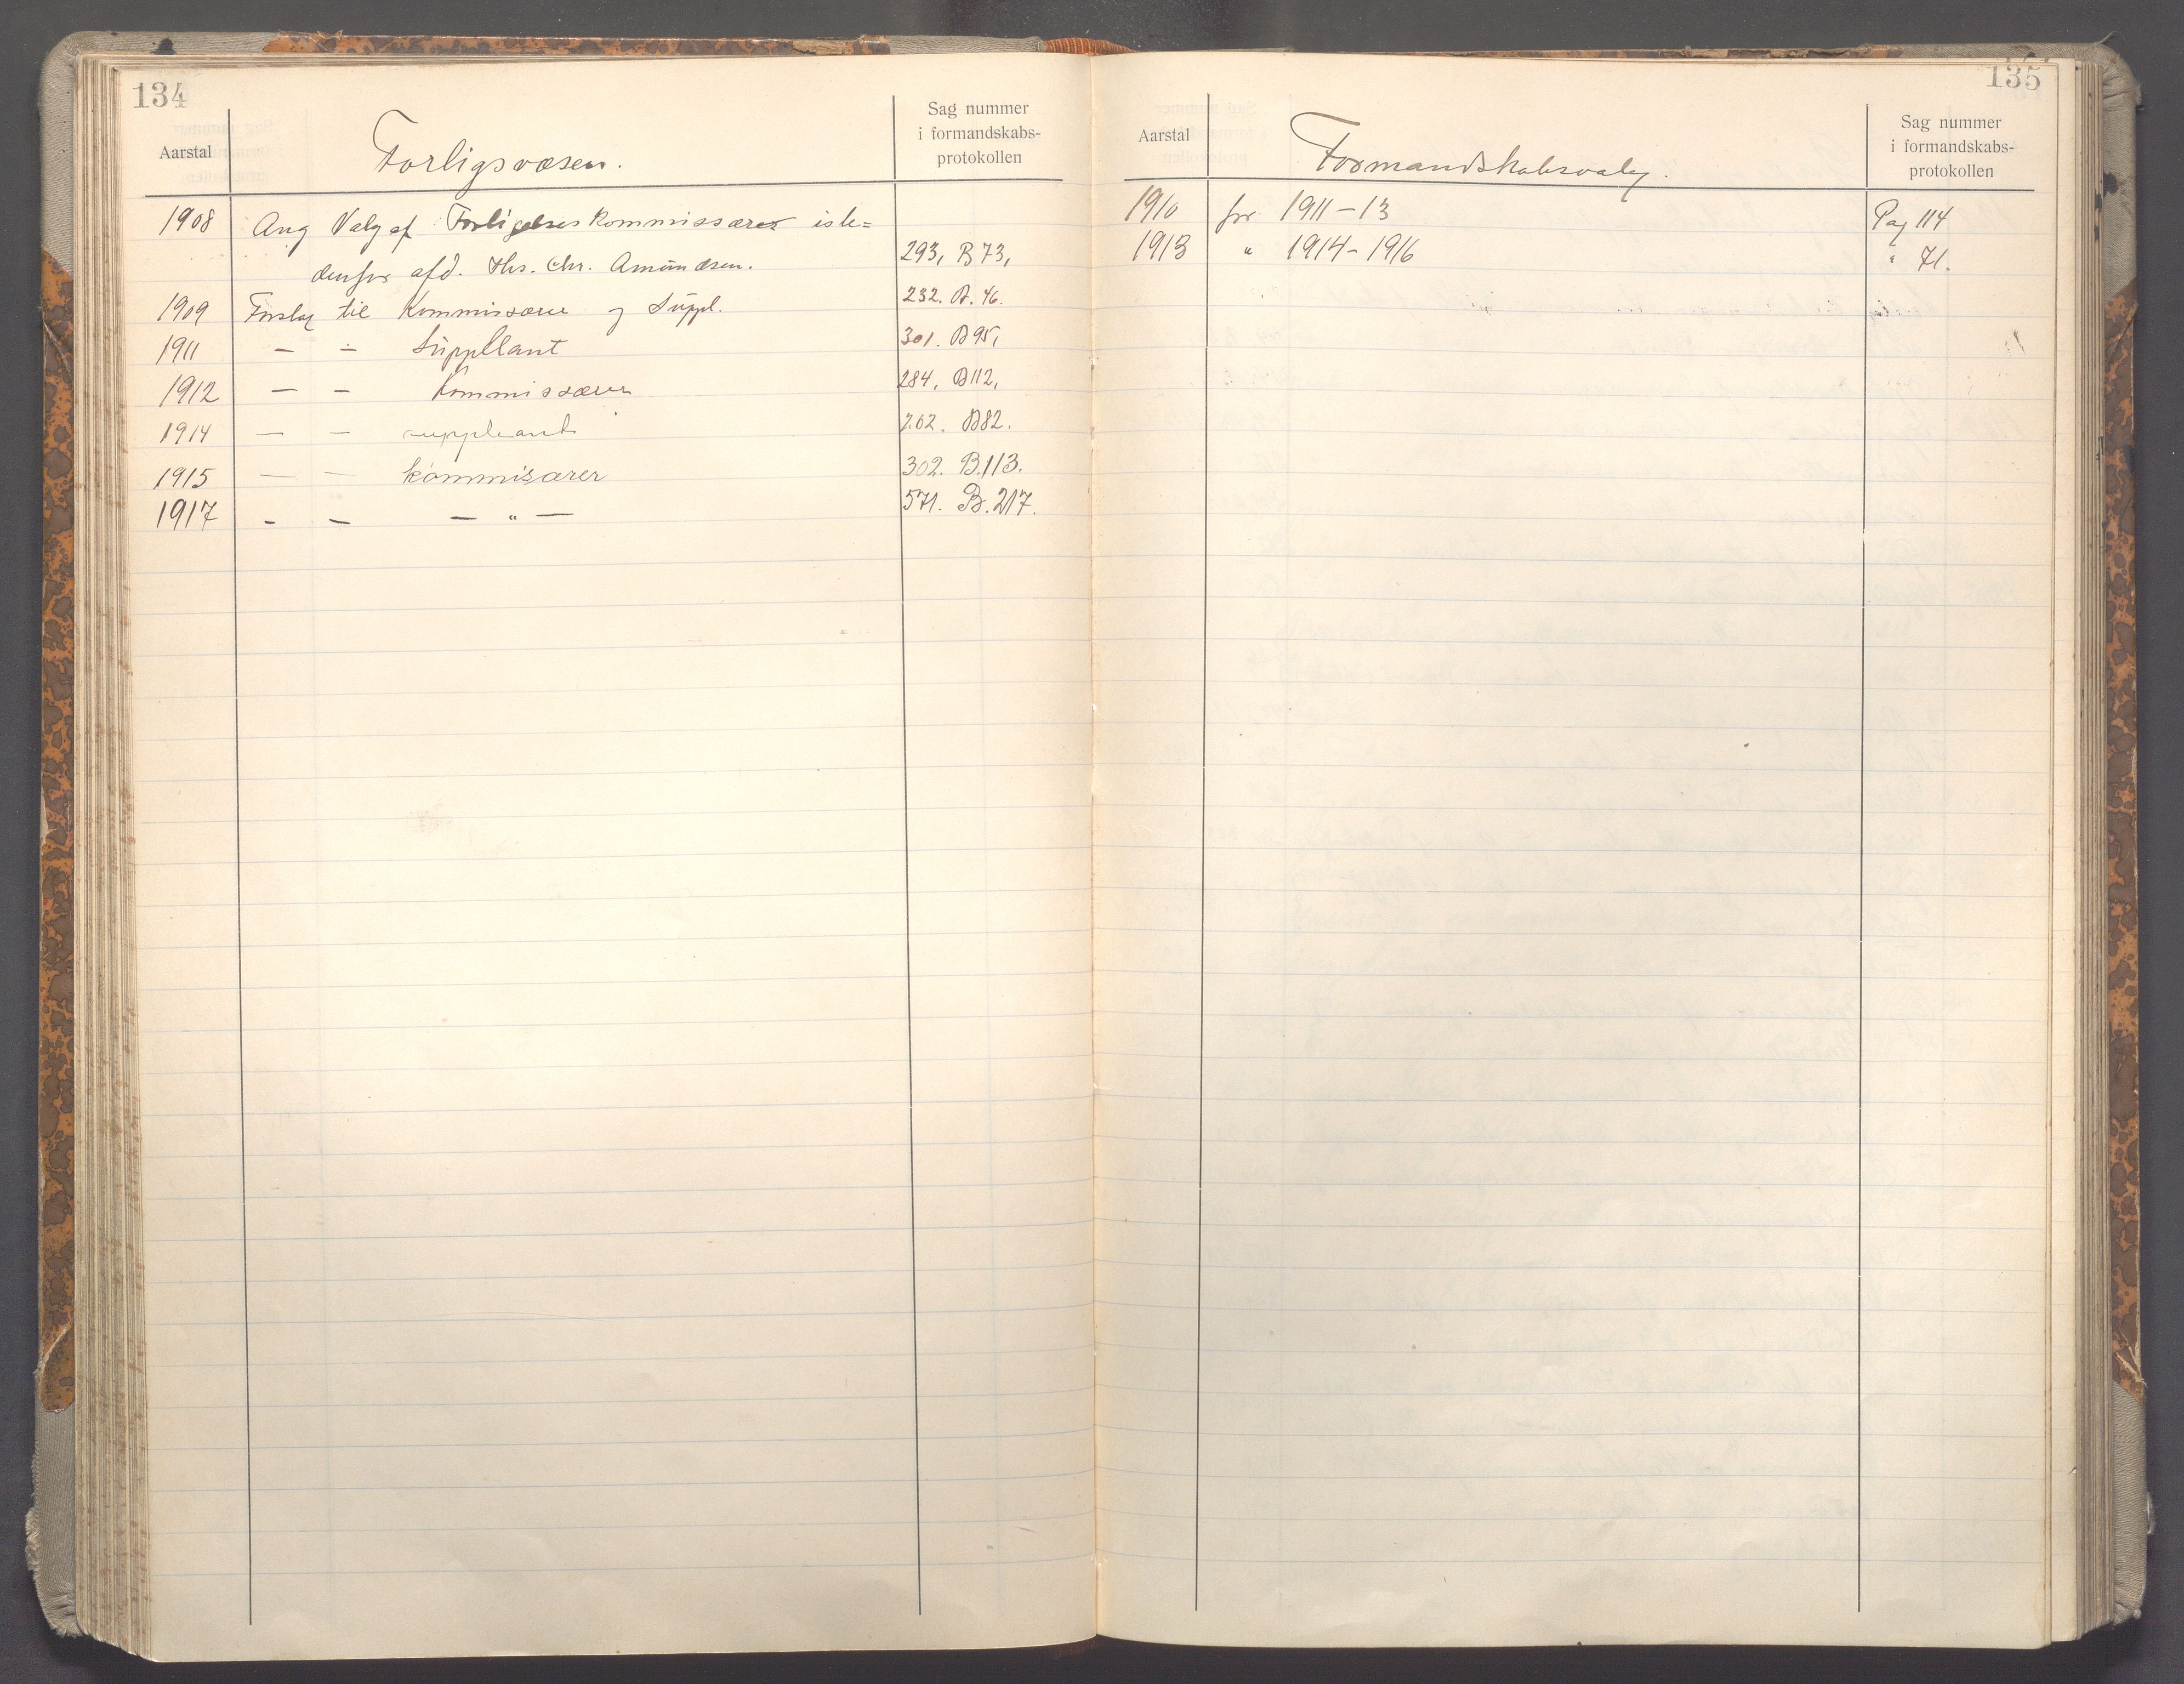 134
Aarstal
Forligsvæsen.
Sag nummer
i formandskabs-
protokollen
1908 Ang Valg af Forligelseskommissærer iste=
denfor afd. Chr. Amundsen. 293, B 73,
1909 Forslag til Kommissærer og Suppl. 232. B. 46.
1911 — — Suppleant 301. B 95,
1912 — — Kommissærer 284, B 112,
1914 — — suppleant 262. B 82.
1915 — — kommisærer 302. B. 113.
1917 - - — " — 571. B. 217.
135
Aarstal
Formandskabsvalg.
Sag nummer
i formandskabs-
protokollen
1910 for 1911 - 13 Pag 114
1913 " 1914 - 1916 " 71.